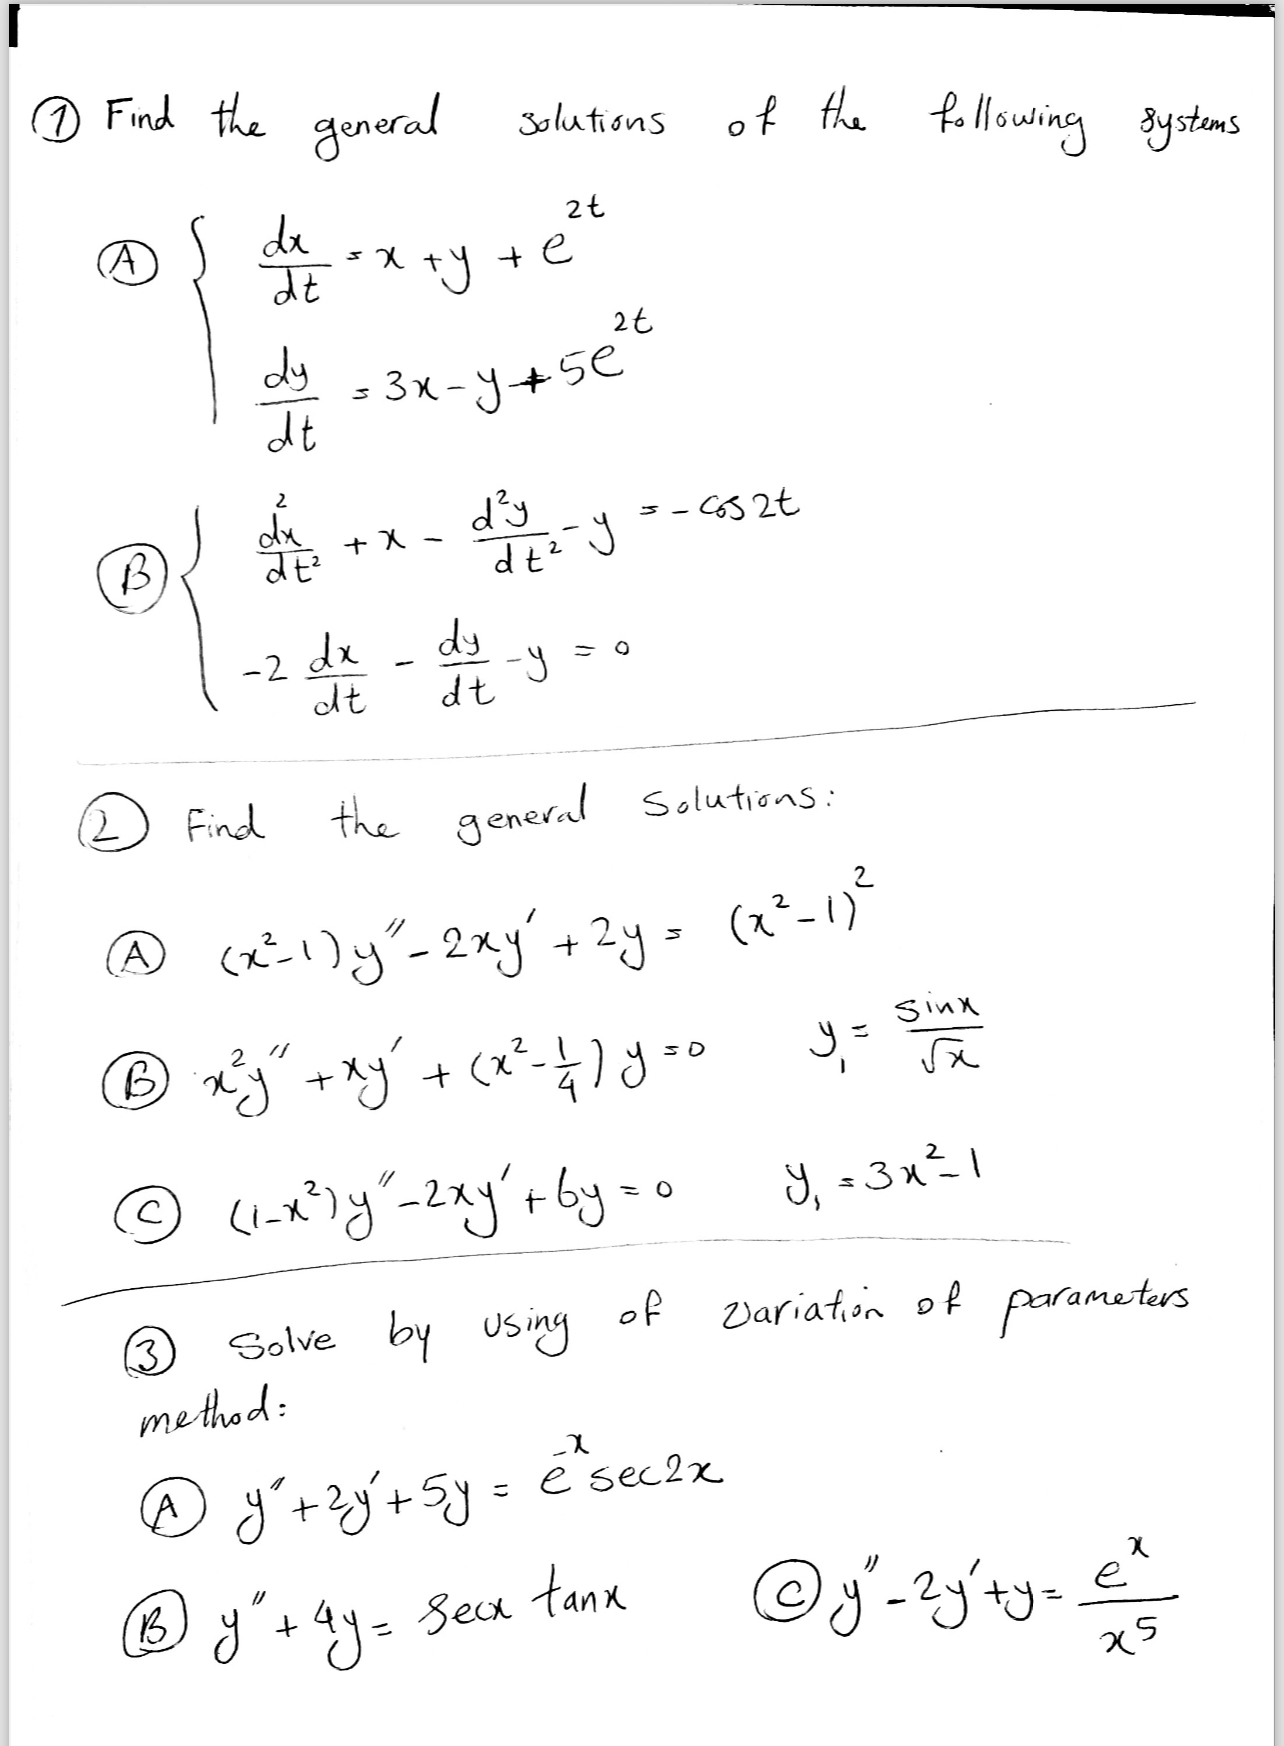 ① Find the general solutions of the following systems
Ⓐ { dx/dt = x + y + e^{2t}
dy/dt = 3x - y + 5e^{2t}
Ⓑ { d²x/dt² + x - d²y/dt² - y = - cos 2t
-2 dx/dt - dy/dt - y = 0
② Find the general solutions:
Ⓐ (x²-1)y'' - 2xy' + 2y = (x²-1)²
Ⓑ x²y'' + xy' + (x² - 1/4) y = 0 y₁ = sinx/√x
Ⓒ (1-x²)y'' - 2xy' + 6y = 0 y₁ = 3x²-1
③ Solve by using of variation of parameters
method:
Ⓐ y'' + 2y' + 5y = e^{-x} sec2x
Ⓑ y'' + 4y = secx tanx Ⓒ y'' - 2y' + y = e^x/x^5